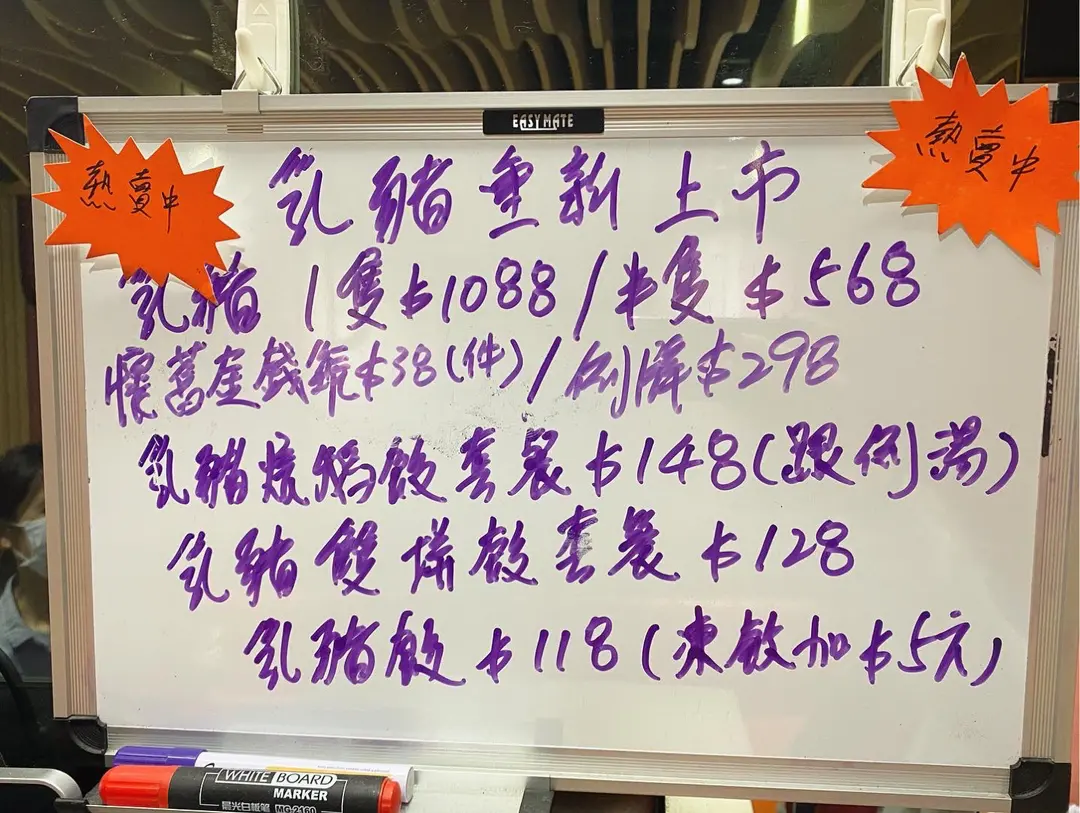 EASYMATE
熱賣中
熱賣中
乳豬重新上市
乳豬 1隻$1088/半隻$568
懷舊金錢雞$38(件)/例牌$298
乳豬燒鵝飯套餐$148(跟例湯)
乳豬雙拼飯套餐$128
乳豬飯$118(凍飲加$5元)
WHITEBOARD
MARKER
晨光白板笔 MG-2160